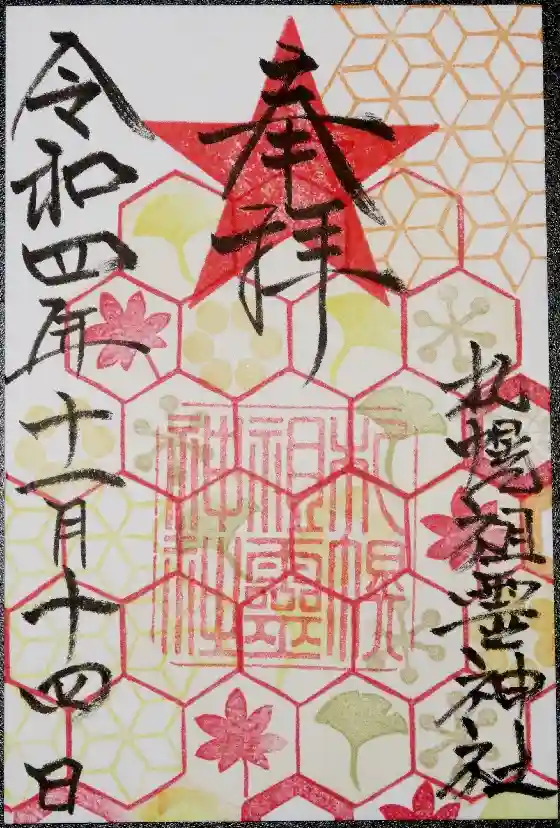 奉拝
札幌祖霊神社
札幌
祖霊
神社
令和四年十一月十四日